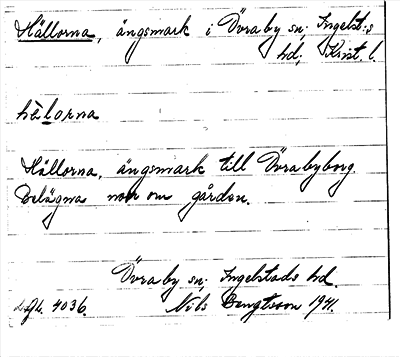 Hällorna, ängsmark i Övraby sn; Ingelst:s
hd, Krist. l.
hälorna
Hällorna, ängsmark till Övrabyborg.
Belägna norr om gården.
Övraby sn; Ingelstads hd.
4036. Nils Bengtsson 1941.